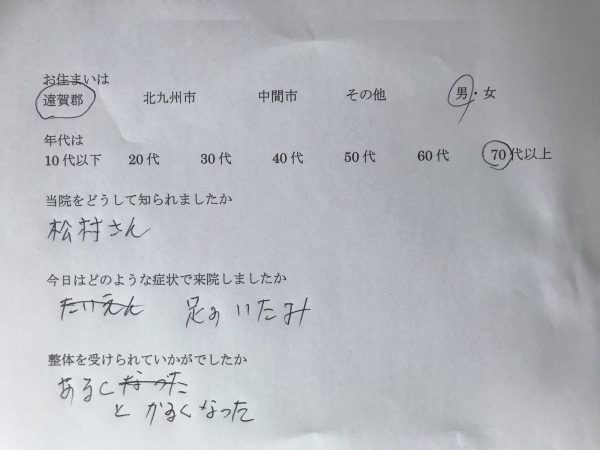 お住まいは
遠賀郡 北九州市 中間市 その他 男・女
年代は
10代以下 20代 30代 40代 50代 60代 70代以上
当院をどうして知られましたか
松村さん
今日はどのような症状で来院しましたか
たいえん 足のいたみ
整体を受けられていかがでしたか
あるくなった
と かるくなった